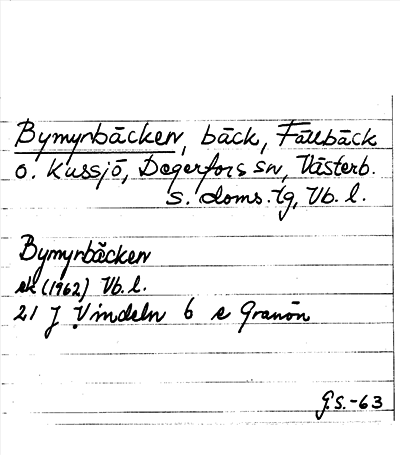 Bymyrbäcken, bäck, Fällbäck
o. Kussjö, Degerfors sn, Västerb.
s. doms. tg, Vb. l.
Bymyrbäcken
ek (1962) Vb. l.
21 J Vindeln 6 e Granön
G.S.-63